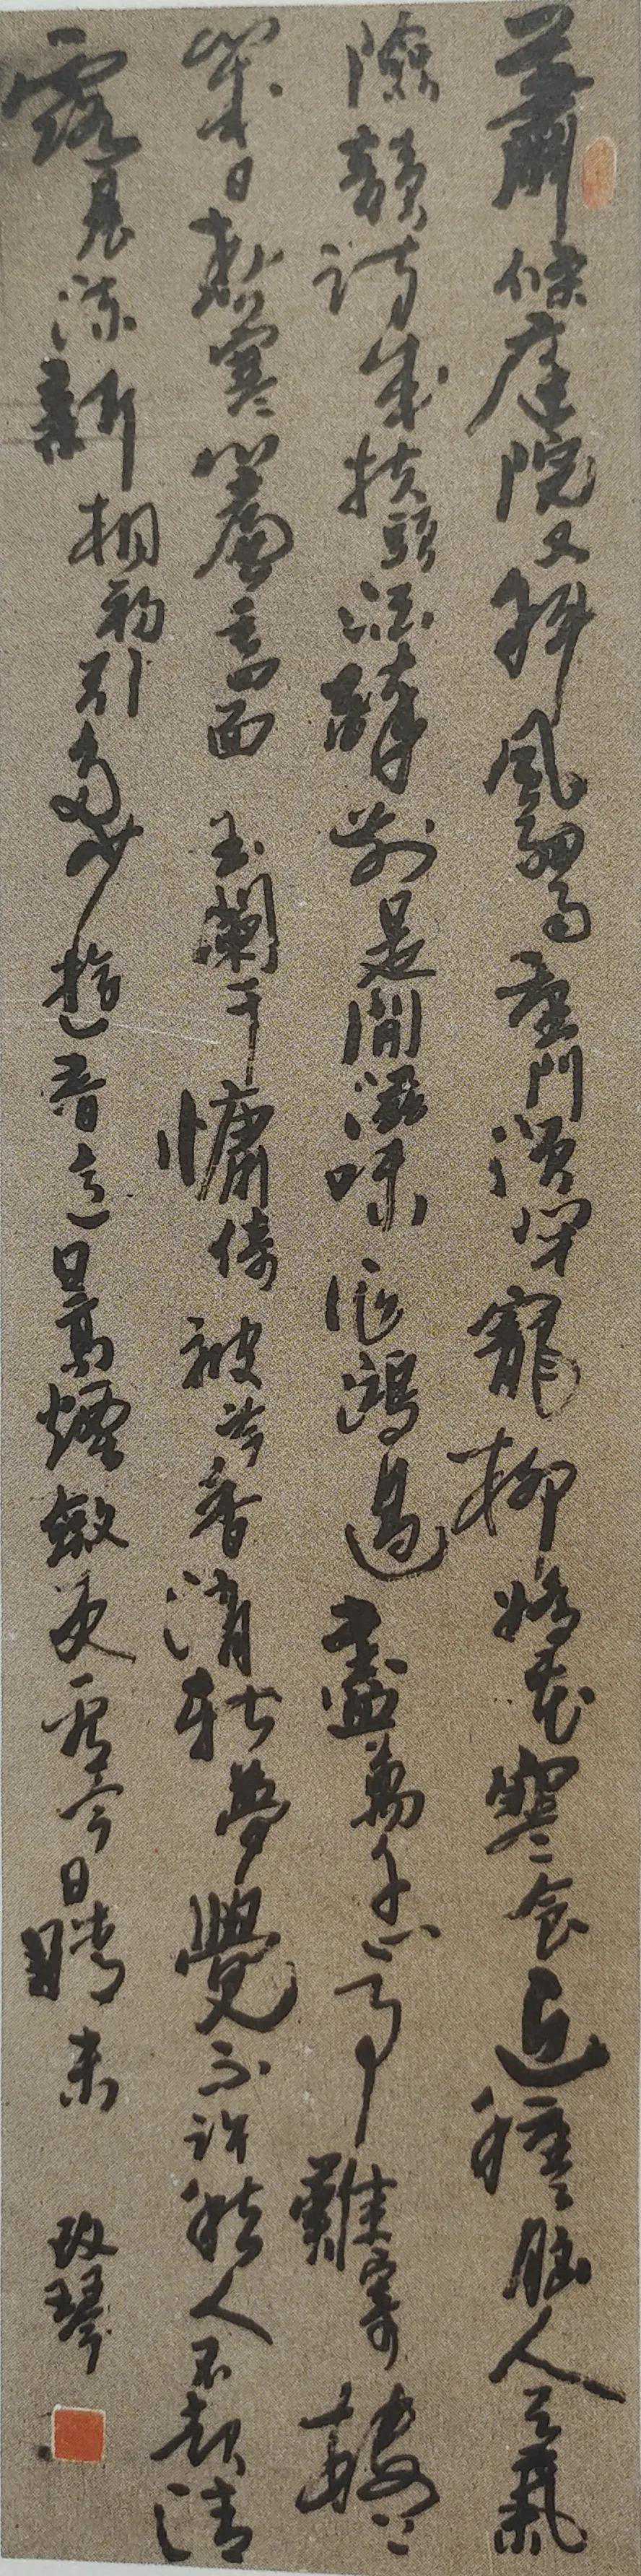 蕭條庭院又斜風細雨重門須閉寵柳嬌花寒食近種種惱人天氣
險韻詩成扶頭酒醒別是閒滋味征鴻過盡萬千心事難寄樓上
幾日春寒簾垂四面玉闌干慵倚被冷香消新夢覺不許愁人不起清
露晨流新桐初引多少遊春意日高煙斂更看今日晴未
玫琴